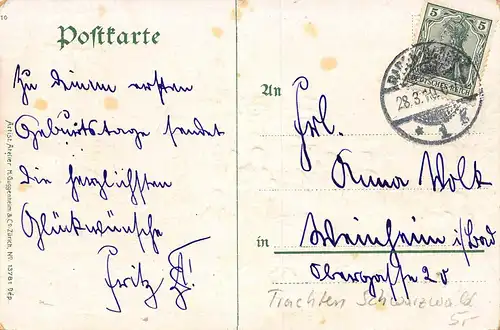 10
Postkarte
Zu deinem ersten
Geburtstage sendet
die herzlichsten
Glückwünsche
Fritz
Artist. Atelier H. Guggenheim & Co. Zürich, No. 13781 Dép.
5
DEUTSCHES REICH
28.3.10
* 1 k
An
Frl.
Anna Volk
in Weinheim i/Bad
Obergasse 20
Trachten Schwarzwald
5,-